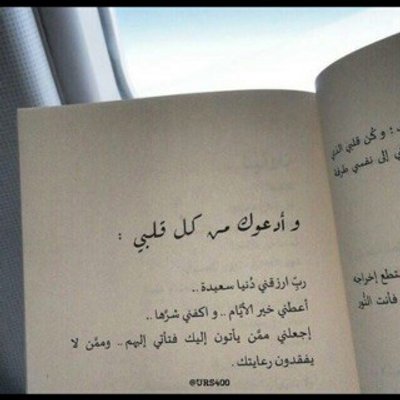 و أدعوك من كل قلبي :
ربّ ارزقني دُنيا سعيدة ..
أعطني خير الأيَّام .. و اكفني شرَّها ..
إجعلني ممَّن يأتون إليك فتأتي إليهم .. وممَّن لا
يفقدون رعايتك .
؛ و كُن قلبي الذي
إلى نفسي طرفة
إخراجه
فأنت النُّور
@URS400